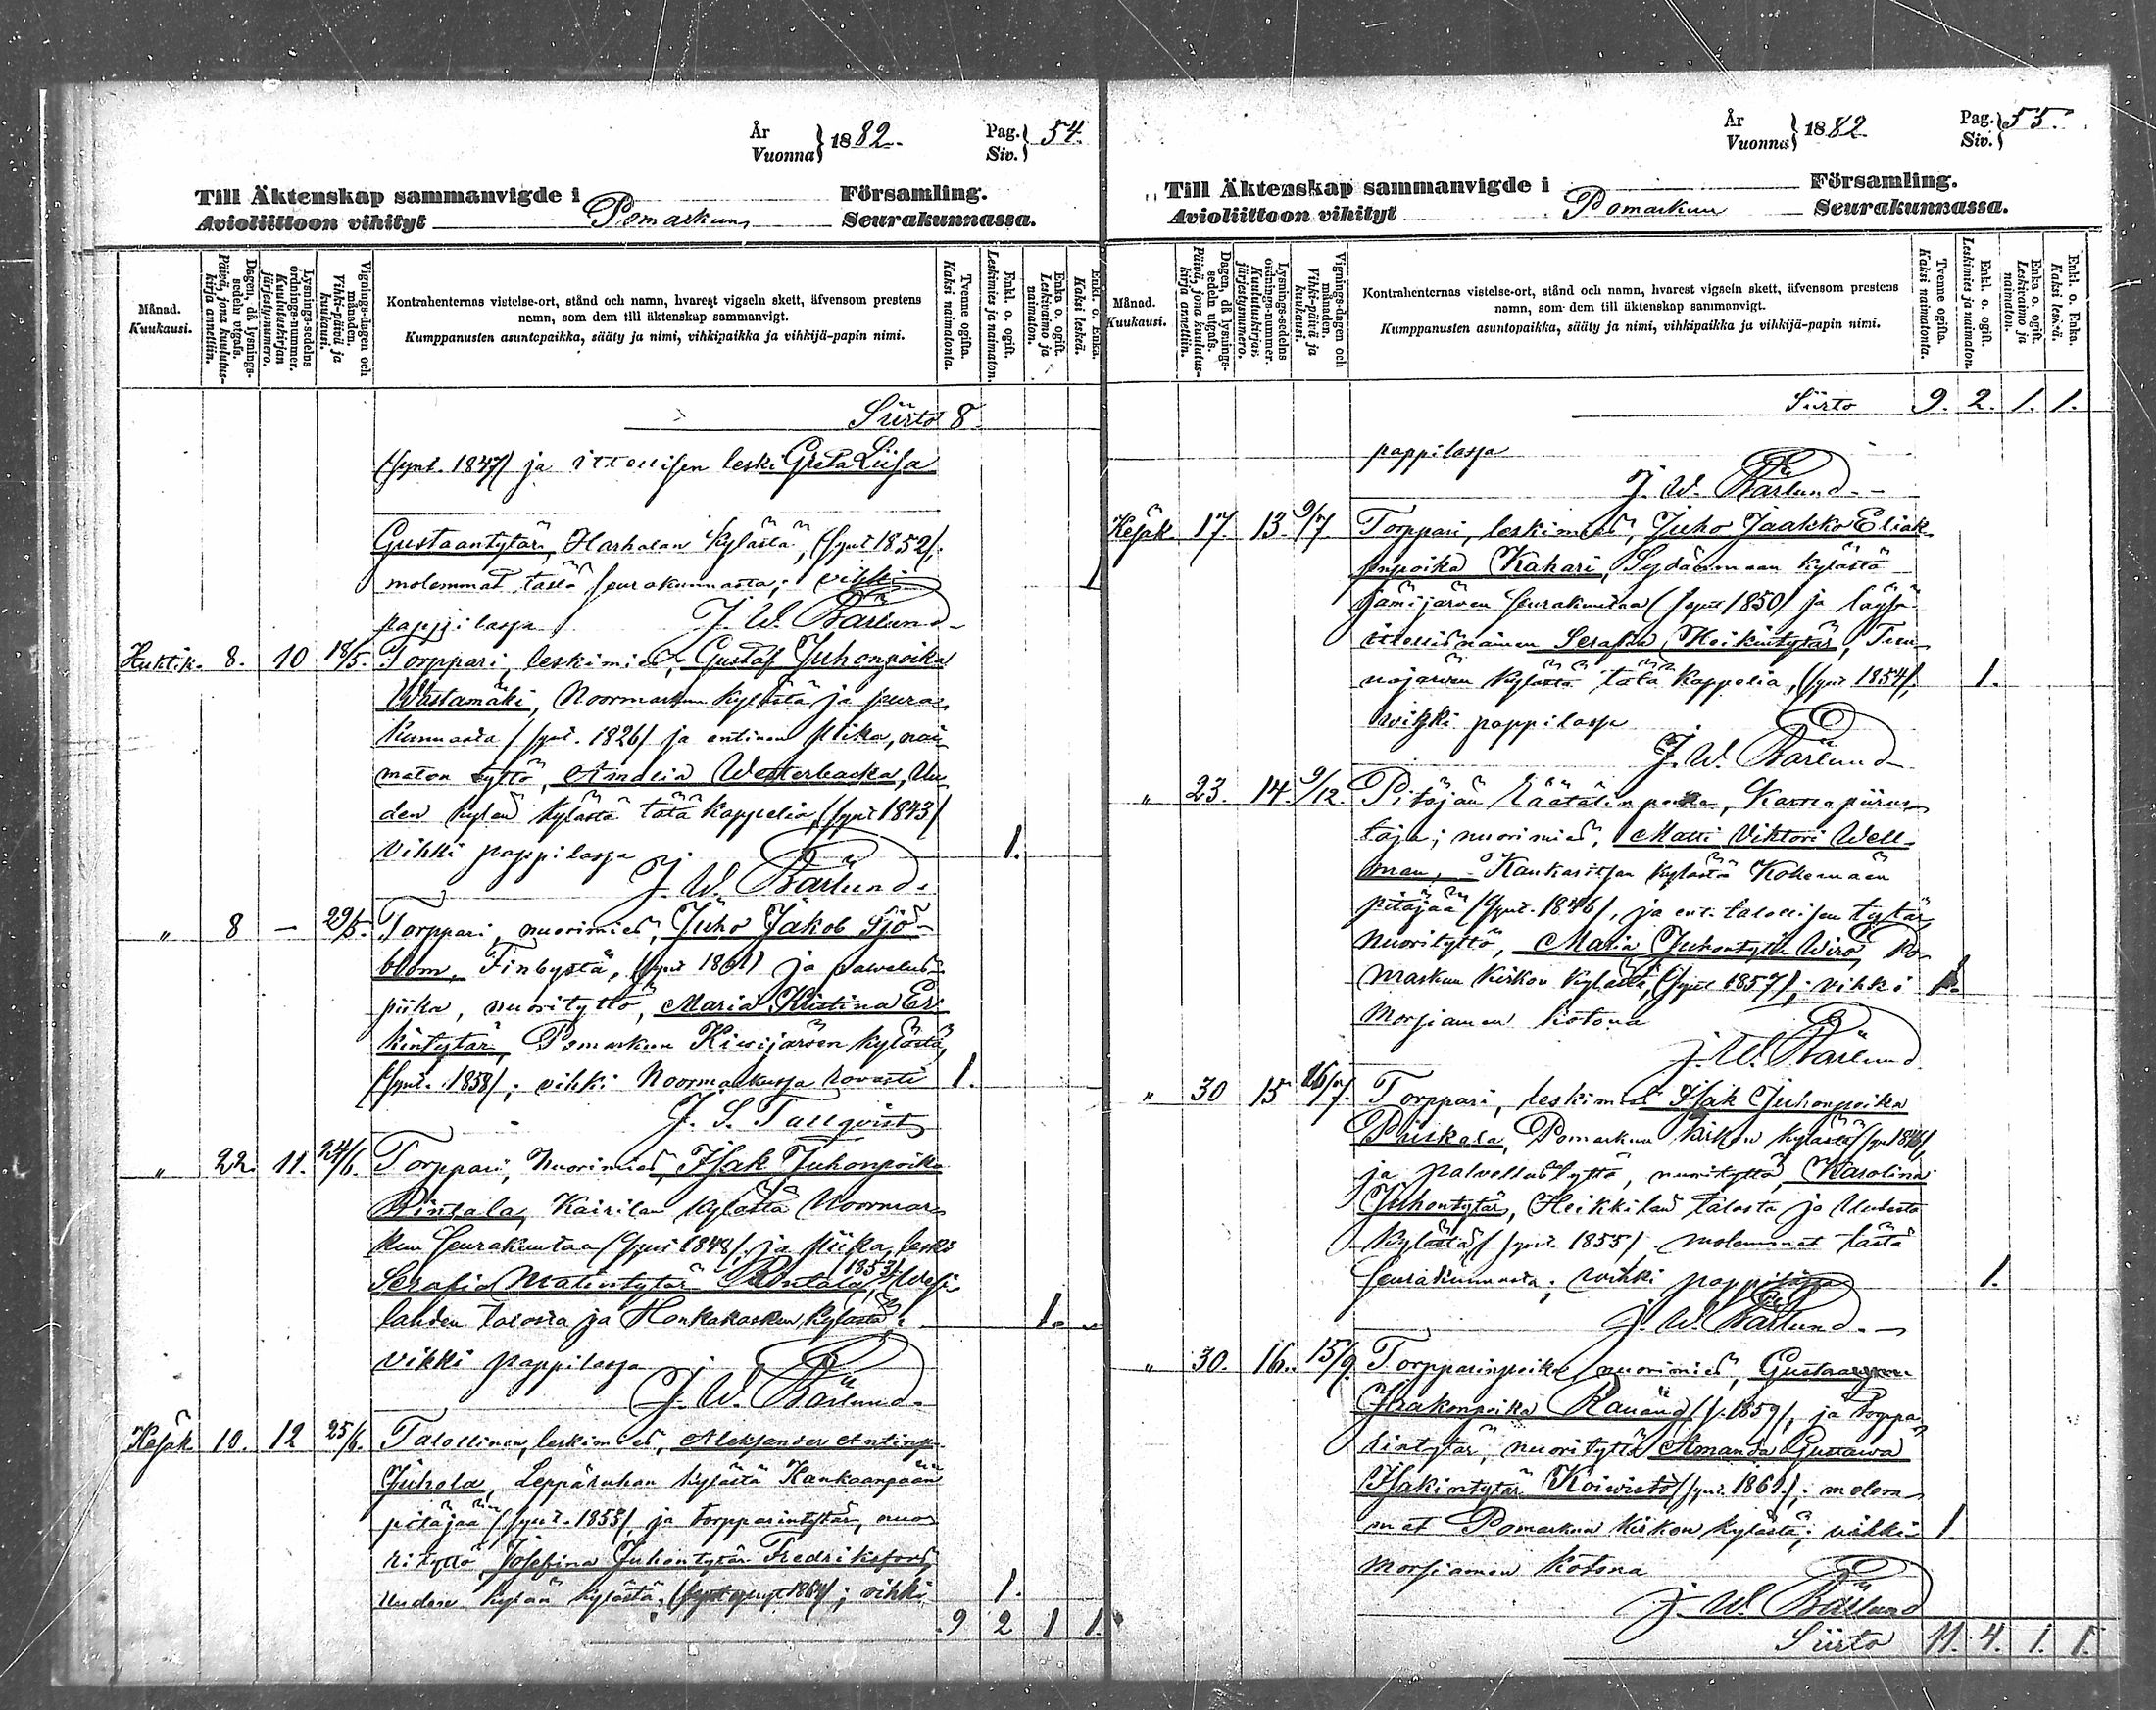 År
Vuonna } 1882.
Pag.
Siv. } 54.
Till Äktenskap sammanvigde i Församling.
Avioliittoon vihityt Pomarkun Seurakunnassa.
Månad.
Kuukausi.
Dagen, då lysnings-
sedeln utgafs.
Päivä, jona kuulutus-
kirja annettiin.
Lysnings-sedelns
ordnings-nummer.
Kuulutuskirjan
järjestysnumero.
Vignings-dagen och
månaden.
Vihki-päivä ja
kuukausi.
Kontrahenternas vistelse-ort, stånd och namn, hvarest vigseln skett, äfvensom prestens
namn, som dem till äktenskap sammanvigt.
Kumppanusten asuntopaikka, sääty ja nimi, vihkipaikka ja vihkijä-papin nimi.
Tvenne ogifta.
Kaksi naimatonta.
Enkl. o. ogift.
Leskimies ja naimaton.
Enka o. ogift.
Leskivaimo ja
naimaton.
Enkl. o. Enka.
Kaksi leskeä.
Siirto 8
(synt. 1847) ja ittellisen leski Greta Liisa
Gustaantytär, Harhalan kylästä, (synt 1852).
molemmat tästä seurakunnasta; vihki 1
pappilassa J. W. Bärlund
Huhtik. 8. 10 18/5. Torppari, leskimies, Gustaf Juhonpoika
Wästamäki, Noormarkun kylästä ja seura-
kunnasta (synt. 1826) ja entinen piika, nai-
maton tyttö, Amalia Westerbacka, Uu-
den kylän kylästä tätä kappelia, (synt 1843)
vihki pappilassa 1.
J. W. Bärlund.
" 8 – 29/5. Torppari, nuorimies, Juho Jakob Sjö-
blom, Finbystä, (synt 1861) ja palvelus-
piika, nuorityttö, Maria Kristina Er-
kintytär, Pomarkun Kiwijärven kylästä,
(synt. 1858); vihki Noormarkussa rovasti 1.
J. S. Tallqvist
" 22. 11. 24/6. Torppari, Nuorimies, Isak Juhonpoika
Rintala, Kairilan kylästä Noormar-
kun seurakuntaa (synt 1848). ja piika, leski
Serafia Matintytär Rintala, 1853,
lahden talosta ja Honkakosken kylästä, 1.
vihki pappilassa
J. W. Bärlund.
Kesäk. 10. 12 25/6. Talollinen, leskimies, Aleksander Antinp.
Juhola, Leppäruhan kylästä Kankaanpään
pitäjää (synt. 1853) ja torpparintytär, nuo-
rityttö, Josefina Juhontytär Fredriksfors,
Uuden kylän kylästä, (synt 1864); vihki 1.
9 2 1 1.
År
Vuonna } 1882
Pag.
Siv. } 55.
Till Äktenskap sammanvigde i Församling.
Avioliittoon vihityt Pomarkun Seurakunnassa.
Månad.
Kuukausi.
Dagen, då lysnings-
sedeln utgafs.
Päivä, jona kuulutus-
kirja annettiin.
Lysnings-sedelns
ordnings-nummer.
Kuulutuskirjan
järjestysnumero.
Vignings-dagen och
månaden.
Vihki-päivä ja
kuukausi.
Kontrahenternas vistelse-ort, stånd och namn, hvarest vigseln skett, äfvensom prestens
namn, som dem till äktenskap sammanvigt.
Kumppanusten asuntopaikka, sääty ja nimi, vihkipaikka ja vihkijä-papin nimi.
Tvenne ogifta.
Kaksi naimatonta.
Enkl. o. ogift.
Leskimies ja naimaton.
Enka o. ogift.
Leskivaimo ja
naimaton.
Enkl. o. Enka.
Kaksi leskeä.
Siirto 9. 2. 1. 1.
pappilassa
J. W. Bärlund.
Kesäk 17. 13 9/7 Torppari, leskimies, Juho Jaakko Eliak-
sinpoika Kahari, Sydänmaan kylästä
Jämijärven seurakuntaa (synt 1850) ja löysä
ittellisnainen Serafia Heikintytär, Tuu-
najärven kylästä tätä kappelia, (synt 1854), 1.
vihki pappilassa
J. W. Bärlund
" 23. 14. 9/12. Pitäjän räätälin poika, Karttapiirus-
taja, nuorimies, Matti Viktori Well-
man, Kankasitjan kylästä Kokemäen
pitäjää (synt. 1846), ja ent. talollisen tytär,
nuorityttö, Maria Juhontytär Wiro, Po-
markun kirkon kylästä, (synt 1857); vihki 1.
Morsiamen kotona
J. W. Bärlund
" 30 15 16/7. Torppari, leskimies Isak Juhonpoika
Priskala, Pomarkun kirkon kylästä
ja palvellustyttö, nuorityttö, Karolina
Juhontytär, Heikkilän talosta ja Uudesta
kylästä (synt. 1855). molemmat tästä
seurakunnasta; vihki pappilassa 1.
J. W. Bärlund.
" 30. 16. 15/9. Torpparinpoika, nuorimies, Gustaa
Iisakonpoika (s. 1859), ja torppa-
rintytär, nuorityttö Amanda Gustawa
Isakintytär Koiwisto (synt. 1862.); molem-
mat Pomarkun kirkon kylästä; vihki 1
Morsiamen kotona
J. W. Bärlund
Siirto 11. 4. 1. 1.